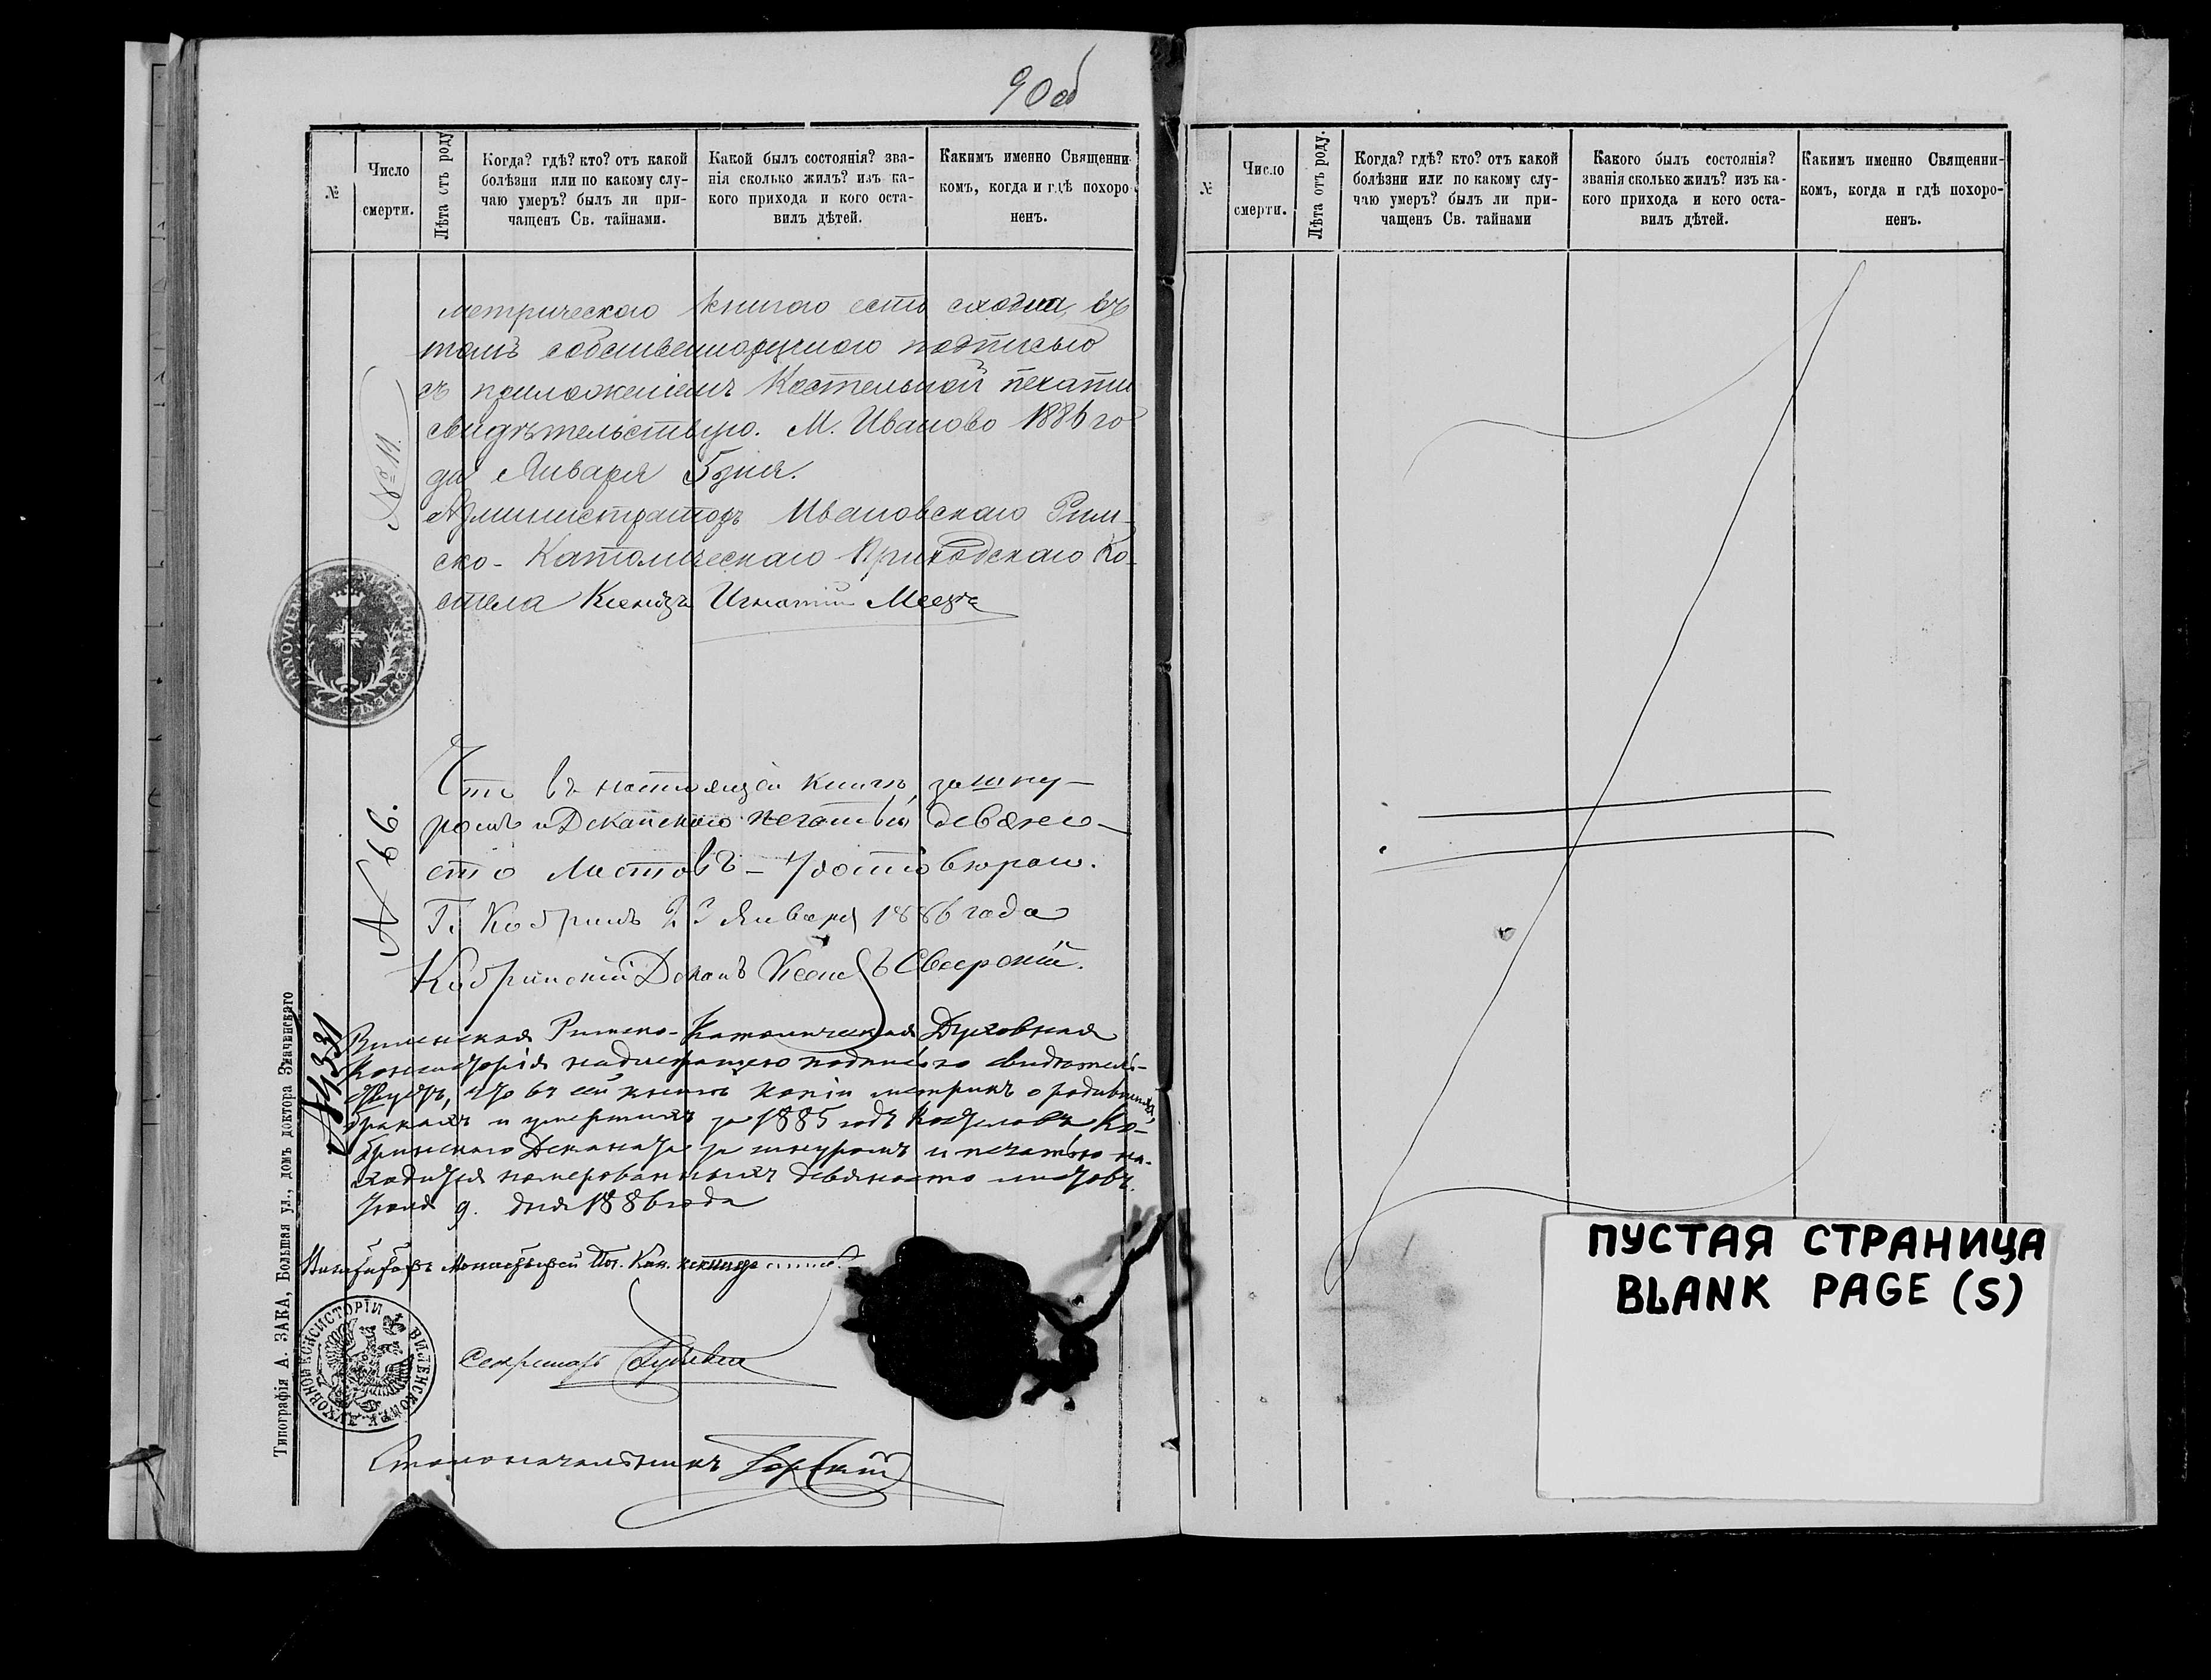 90 об
№
Число
смерти.
Лѣта отъ роду
Когда? гдѣ? кто? отъ какой
болѣзни или по какому слу-
чаю умеръ? былъ ли при-
чащенъ Св. тайнами.
Какой былъ состоянія? зва-
нія сколько жилъ? изъ ка-
кого прихода и кого оста-
вилъ дѣтей.
Каким именно Священни-
комъ, когда и гдѣ похоро
ненъ.
метрическою книгою есть сходна, въ
томъ собственноручною подписью
съ приложеніемъ Костельной печати
свидѣтельствую. М. Иваново 1886 го
да Января 5 дня.
№ 11.
Администраторъ Ивановскаго Рим-
ско-Католическаго Приходскаго Ко-
стела Ксендзъ Игнатій
IANOVIENSIS
Что въ настоящей книгѣ, за шну-
ромъ и Деканскою печатью девяно-
сто листовъ – удостовѣряю.
Г. Кобринъ 23 Января 1886 года
N 66.
Кобринскій Деканъ Ксендзъ
Виленская Римско-Католическая Духовная
Консисторія надлежащею подписью свидѣтель-
ствуетъ, что въ сей книгѣ копіи метрикъ о родившихся,
бракахъ и умершихъ за 1885 годъ Костеловъ Ко-
бринскаго Деканата за шнуромъ и печатью на-
ходится номерованныхъ девяносто листовъ.
9. дня 1886 года
Визитаторъ Монастырей
Секретарь
Столоначальникъ
ВИЛЕНСКОЙ Р. К. ДУХОВНОЙ КОНСИСТОРІИ
Типографія А. ЗАКА, Большая ул., домъ доктора Значенскаго
№
Число
смерти.
Лѣта отъ роду.
Когда? гдѣ? кто? отъ какой
болѣзни или по какому слу-
чаю умеръ? былъ ли при-
чащенъ Св. тайнами
Какого былъ состоянія?
званія сколько жилъ? изъ ка-
кого прихода и кого оста-
вилъ дѣтей.
Какимъ именно Священни-
комъ, когда и гдѣ похоро-
ненъ.
ПУСТАЯ СТРАНИЦА
BLANK PAGE (S)